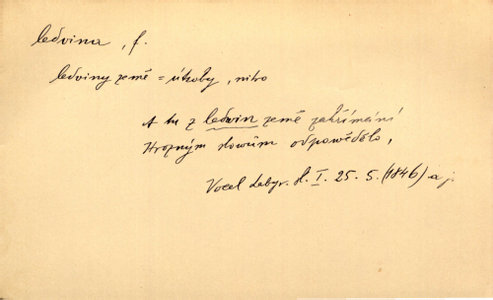 ledvina, f.
ledviny země = útroby, nitro
A tu z ledvin země zahřímání
Hrozným slowům odpowědělo,
Vocel Labyr. Sl. I. 25. 5. (1846) a j.